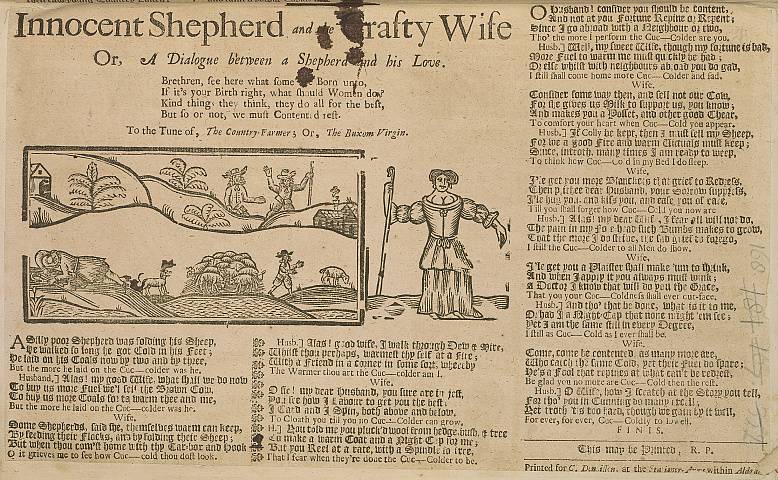 Innocent Shepherd and the Crafty Wife
Or, A Dialogue between a Shepherd and his Love.
Brethren, see here what some Born unto,
If it's your Birth right, what should Women do?
Kind things they think, they do all for the best,
But so or not, we must Contented rest.
To the Tune of, The Country Farmer; Or, The Buxom Virgin.
A Silly poor Shepherd was folding his Sheep,
He walked so long he got Cold in his Feet;
He laid on his Coals now by two and by three,
But the more he laid on the Cuc—colder was he.
Husband.] Alas! my good Wife, what shall we do now
To buy us more Fuel we'l sell the Brown Cow,
To buy us more Coals for to warm thee and me,
But the more he laid on the Cuc—colder was he.
Wife,
Some Shepherds, said she, themselves warm can keep,
By feeding their Flocks, and by folding their Sheep;
But when thou com'st home with thy Tar-box and Hook
O it grieves me to see how Cuc—cold thou dost look.
Husb.] Alas! good wife, I walk through Dew & Mire,
Whilst thou perhaps, warmest thy self at a Fire;
With a Friend in a corner in some sort, whereby
The Warmer thou art the Cuc—colder am I.
Wife.
O fie! my dear Husband, you sure are in jest,
You see how I labour to get you the best,
I Card and I Spin, both above and below,
To Cloath you till you no Cuc—Colder can grow.
H.] You told me you pluck'd wool from hedge, bush, & tree
To make a warm Coat and a Night Cap for me;
But you Reel at a rate, with a Spindle so free,
That I fear when they're done the Cuc—Colder to be.
O Husband! consider you should be content,
And not at you Fortune Repine or Repent;
Since I go abroad with a Neighbour or two,
Tho' the more I perform the Cuc—Colder are you.
Husb.] Well, my sweet Wife, though my fortune is bad,
More Fuel to warm me must quickly be had;
Or else whilst with neighbours abroad you do gad,
I still shall come home more Cuc—Colder and sad.
Wife.
Consider some way then, and sell not our Cow,
For she gives us Milk to support us, you know;
And makes you a Posset, and other good Chear,
To comfort your heart when Cuc—Cold you appear.
Husb.] If Colly be kept, then I must sell my Sheep,
For we a good Fire and warm Victuals must keep;
Since, introth, many times I am ready to weep,
To think how Cuc—Cold in my Bed I do sleep.
Wife,
I'le get you more Blankets that grief to Redress,
Then prithee dear Husband, your Sorrow suppress,
I'le hug you, and kiss you, and ease you of care,
Till you shall forget how Cuc—Cold you now are.
Husb.] Alas! my dear Wife, I fear all will not do,
The pain in my Forehead such Bumbs makes to grow,
That the more I do strive, the sad grief to forego,
I still the Cuc—Colder to all Men do show.
Wife,
I'le get you a Plaister shall make 'um to shink,
And when I apply it you always must wink;
A Doctor I know that will do you the Grace,
That you your Cuc—Coldness shall ever out-face.
Husb.] And tho' that be done, what is it to me,
Or had I a Night-Cap that none might 'em see;
Yet I am the same still in every Degree,
I still as Cuc—Cold as I ever shall be.
Wife.
Come, come be contented, as many more are,
Who catch the same Cold, yet their Fuel do spare;
He's a Fool that repines at what can't be redrest,
Be glad you no more are Cuc—Cold then the rest.
Husb.] O Wife, how I scratch at the Story you tell,
For tho' you in Cunning do many excell,
Yet troth 'tis too hard, though we gain by it well,
For ever, for ever, Cuc—Coldly to Dwell.
FINIS.
This may be Printed, R. P.
Printed for C. at the within